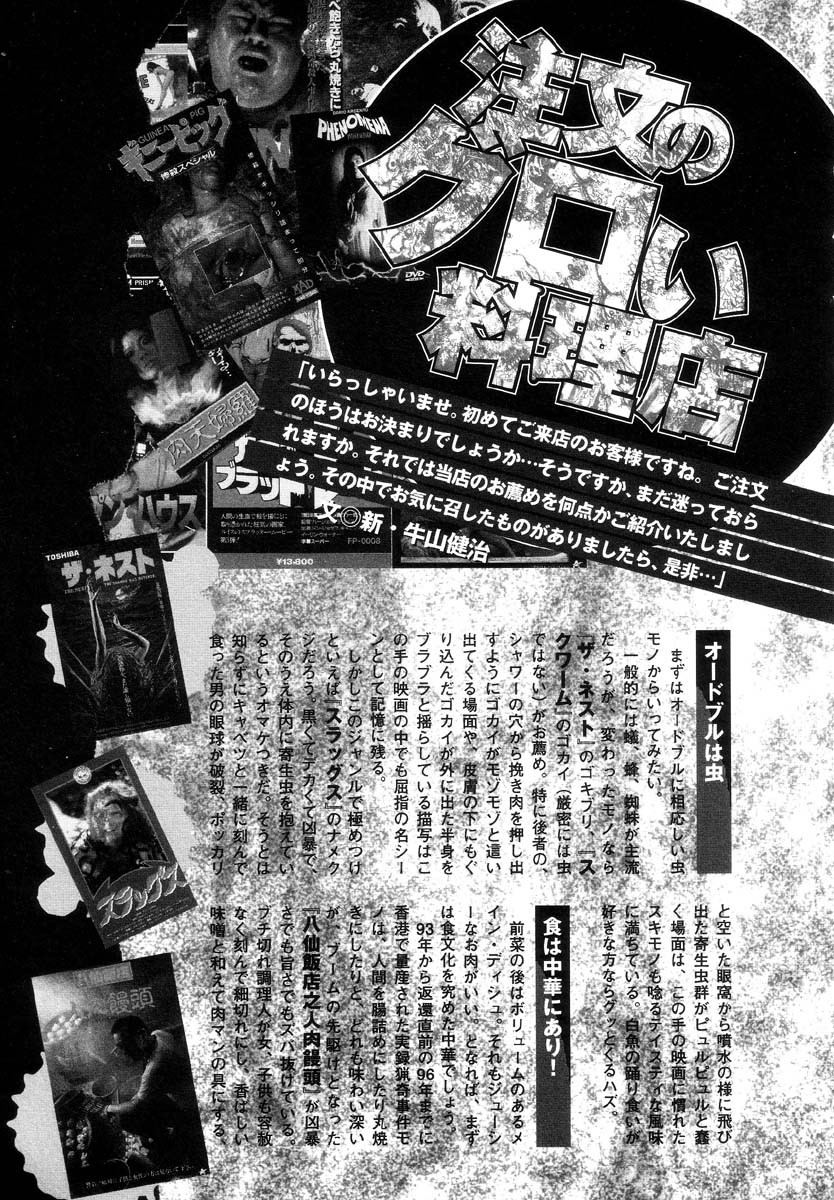 注文の
グロい
料理店
「いらっしゃいませ。初めてご来店のお客様ですね。ご注文
のほうはお決まりでしょうか…そうですか、まだ迷っておら
れますか。それでは当店のお薦めを何点かご紹介いたしまし
ょう。その中でお気に召したものがありましたら、是非…」
文◎新・牛山健治
オードブルは虫
まずはオードブルに相応しい虫
モノからいってみたい。
一般的には蟻、蜂、蜘蛛が主流
だろうが、変わったモノなら
『ザ・ネスト』のゴキブリ、『ス
クワーム』のゴカイ（厳密には虫
ではない）がお薦め。特に後者の、
シャワーの穴から挽き肉を押し出
すようにゴカイがモゾモゾと這い
出てくる場面や、皮膚の下にもぐ
り込んだゴカイが外に出た半身を
ブラブラと揺らしている描写はこ
の手の映画の中でも屈指の名シー
ンとして記憶に残る。
しかしこのジャンルで極めつけ
といえば『スラッグス』のナメク
ジだろう。黒くてデカくて凶暴で、
そのうえ体内に寄生虫を抱えてい
るというオマケつきだ。そうとは
知らずにキャベツと一緒に刻んで
食った男の眼球が破裂、ポッカリ
と空いた眼窩から噴水の様に飛び
出た寄生虫群がピュルピュルと蠢
く場面は、この手の映画に慣れた
スキモノも唸るテイスティな風味
に満ちている。白魚の踊り食いが
好きな方ならグッとくるハズ。
食は中華にあり！
前菜の後はボリュームのあるメ
イン・ディシュ。それもジューシ
ーなお肉がいい。となれば、まず
は食文化を究めた中華でしょう。
93年から返還直前の96年までに
香港で量産された実録猟奇事件モ
ノは、人間を腸詰めにしたり丸焼
きにしたりと、どれも味わい深い
が、ブームの先駆けとなった
『八仙飯店之人肉饅頭』が凶暴
さでも旨さでもズバ抜けている。
ブチ切れ調理人が女、子供も容赦
なく刻んで細切れにし、香ばしい
味噌と和えて肉マンの具にする
べ飽きたら、丸焼きに
GUINEA PIG
ギニーピッグ
惨殺スペシャル
DARIO ARGENTO
PHENOMENA
DVD
MAD
PRISM
肉天婦羅
ハウス
ブラッド
¥13,800
FP-0008
TOSHIBA
ザ・ネスト
スラッグス
饅頭